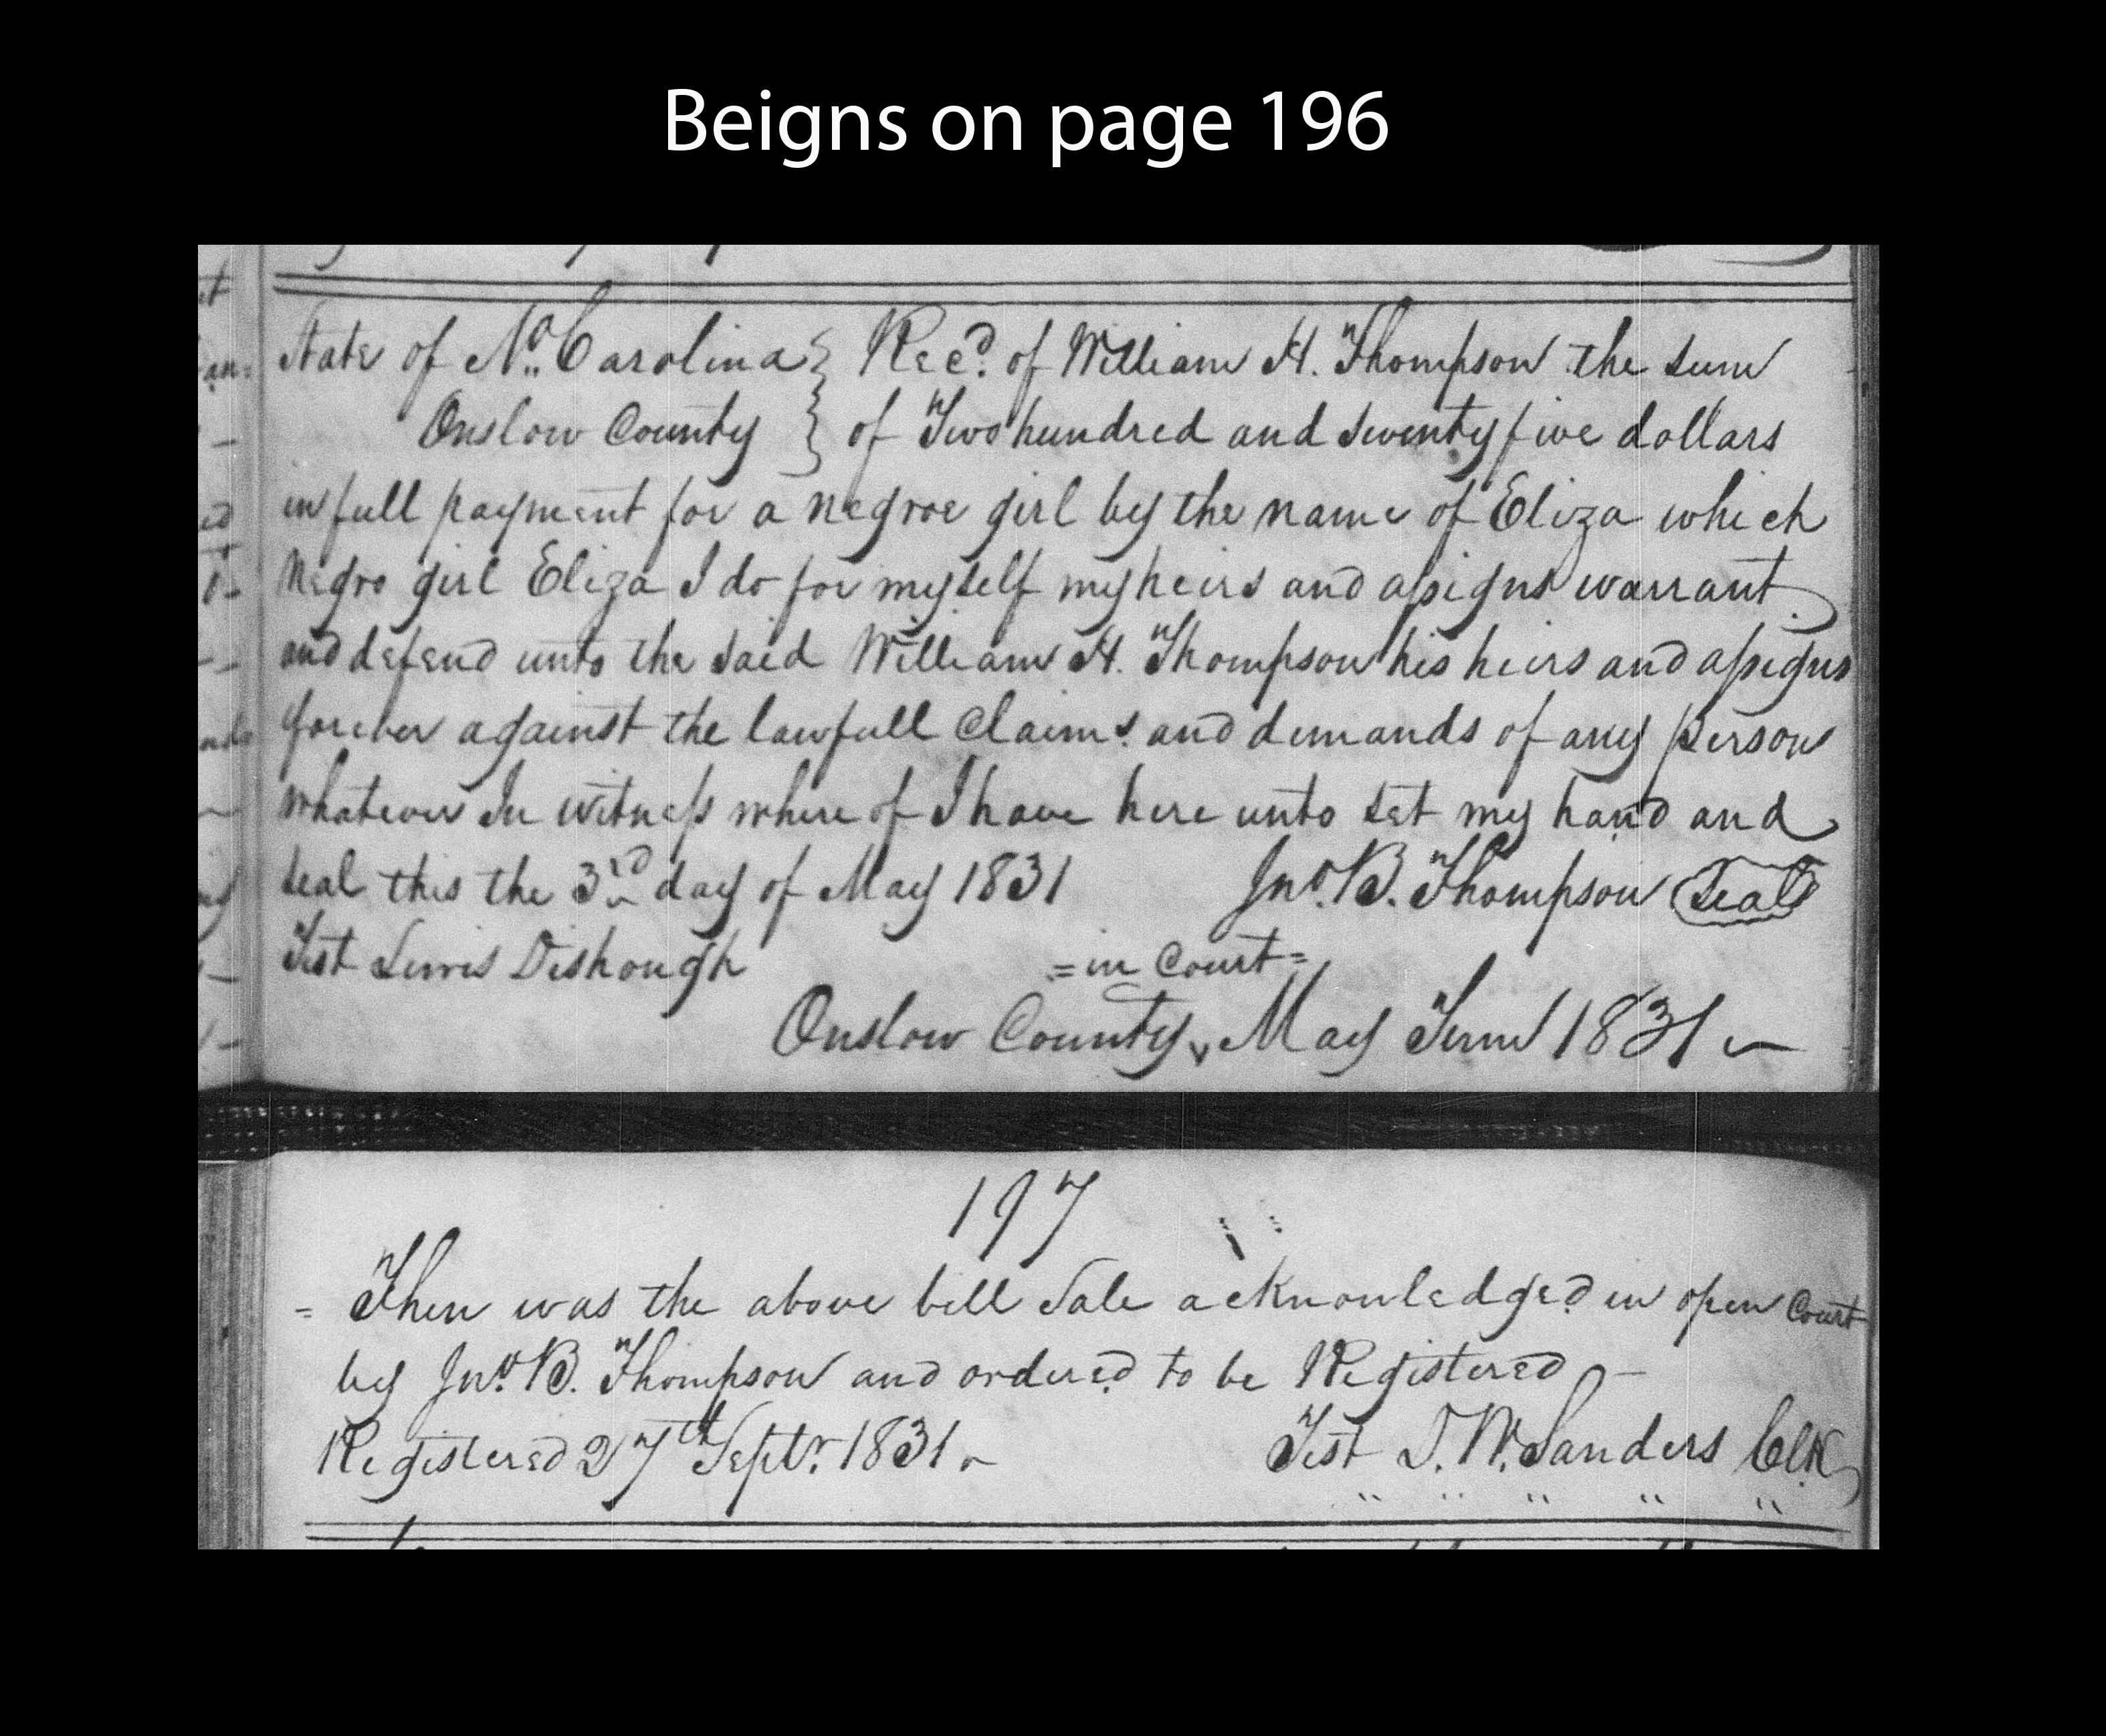 Beigns on page 196
State of No. Carolina } Recd. of William H. Thompson the sum
Onslow County } of Two hundred and seventy five dollars
in full payment for a negroe girl by the name of Eliza which
Negro girl Eliza I do for myself my heirs and assigns warrant
and defend unto the said William H. Thompson his heirs and assigns
forever against the lawfull claims and demands of any person
whatever In witness where of I have here unto set my hand and
seal this the 3rd day of May 1831 Jno. B. Thompson Seal
Test Lewis Dishough =in Court=
Onslow County, May Term 1831
197
= Then was the above bill Sale acknowledged in open Court
by Jno. B. Thompson and ordered to be Registered –
Registered 27th Septr. 1831 Test D. W. Sanders Clk